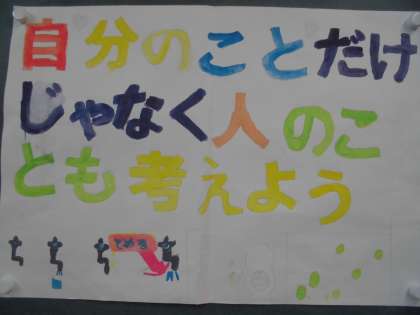 自分のことだけ
じゃなく人のこ
とも考えよう
とめる